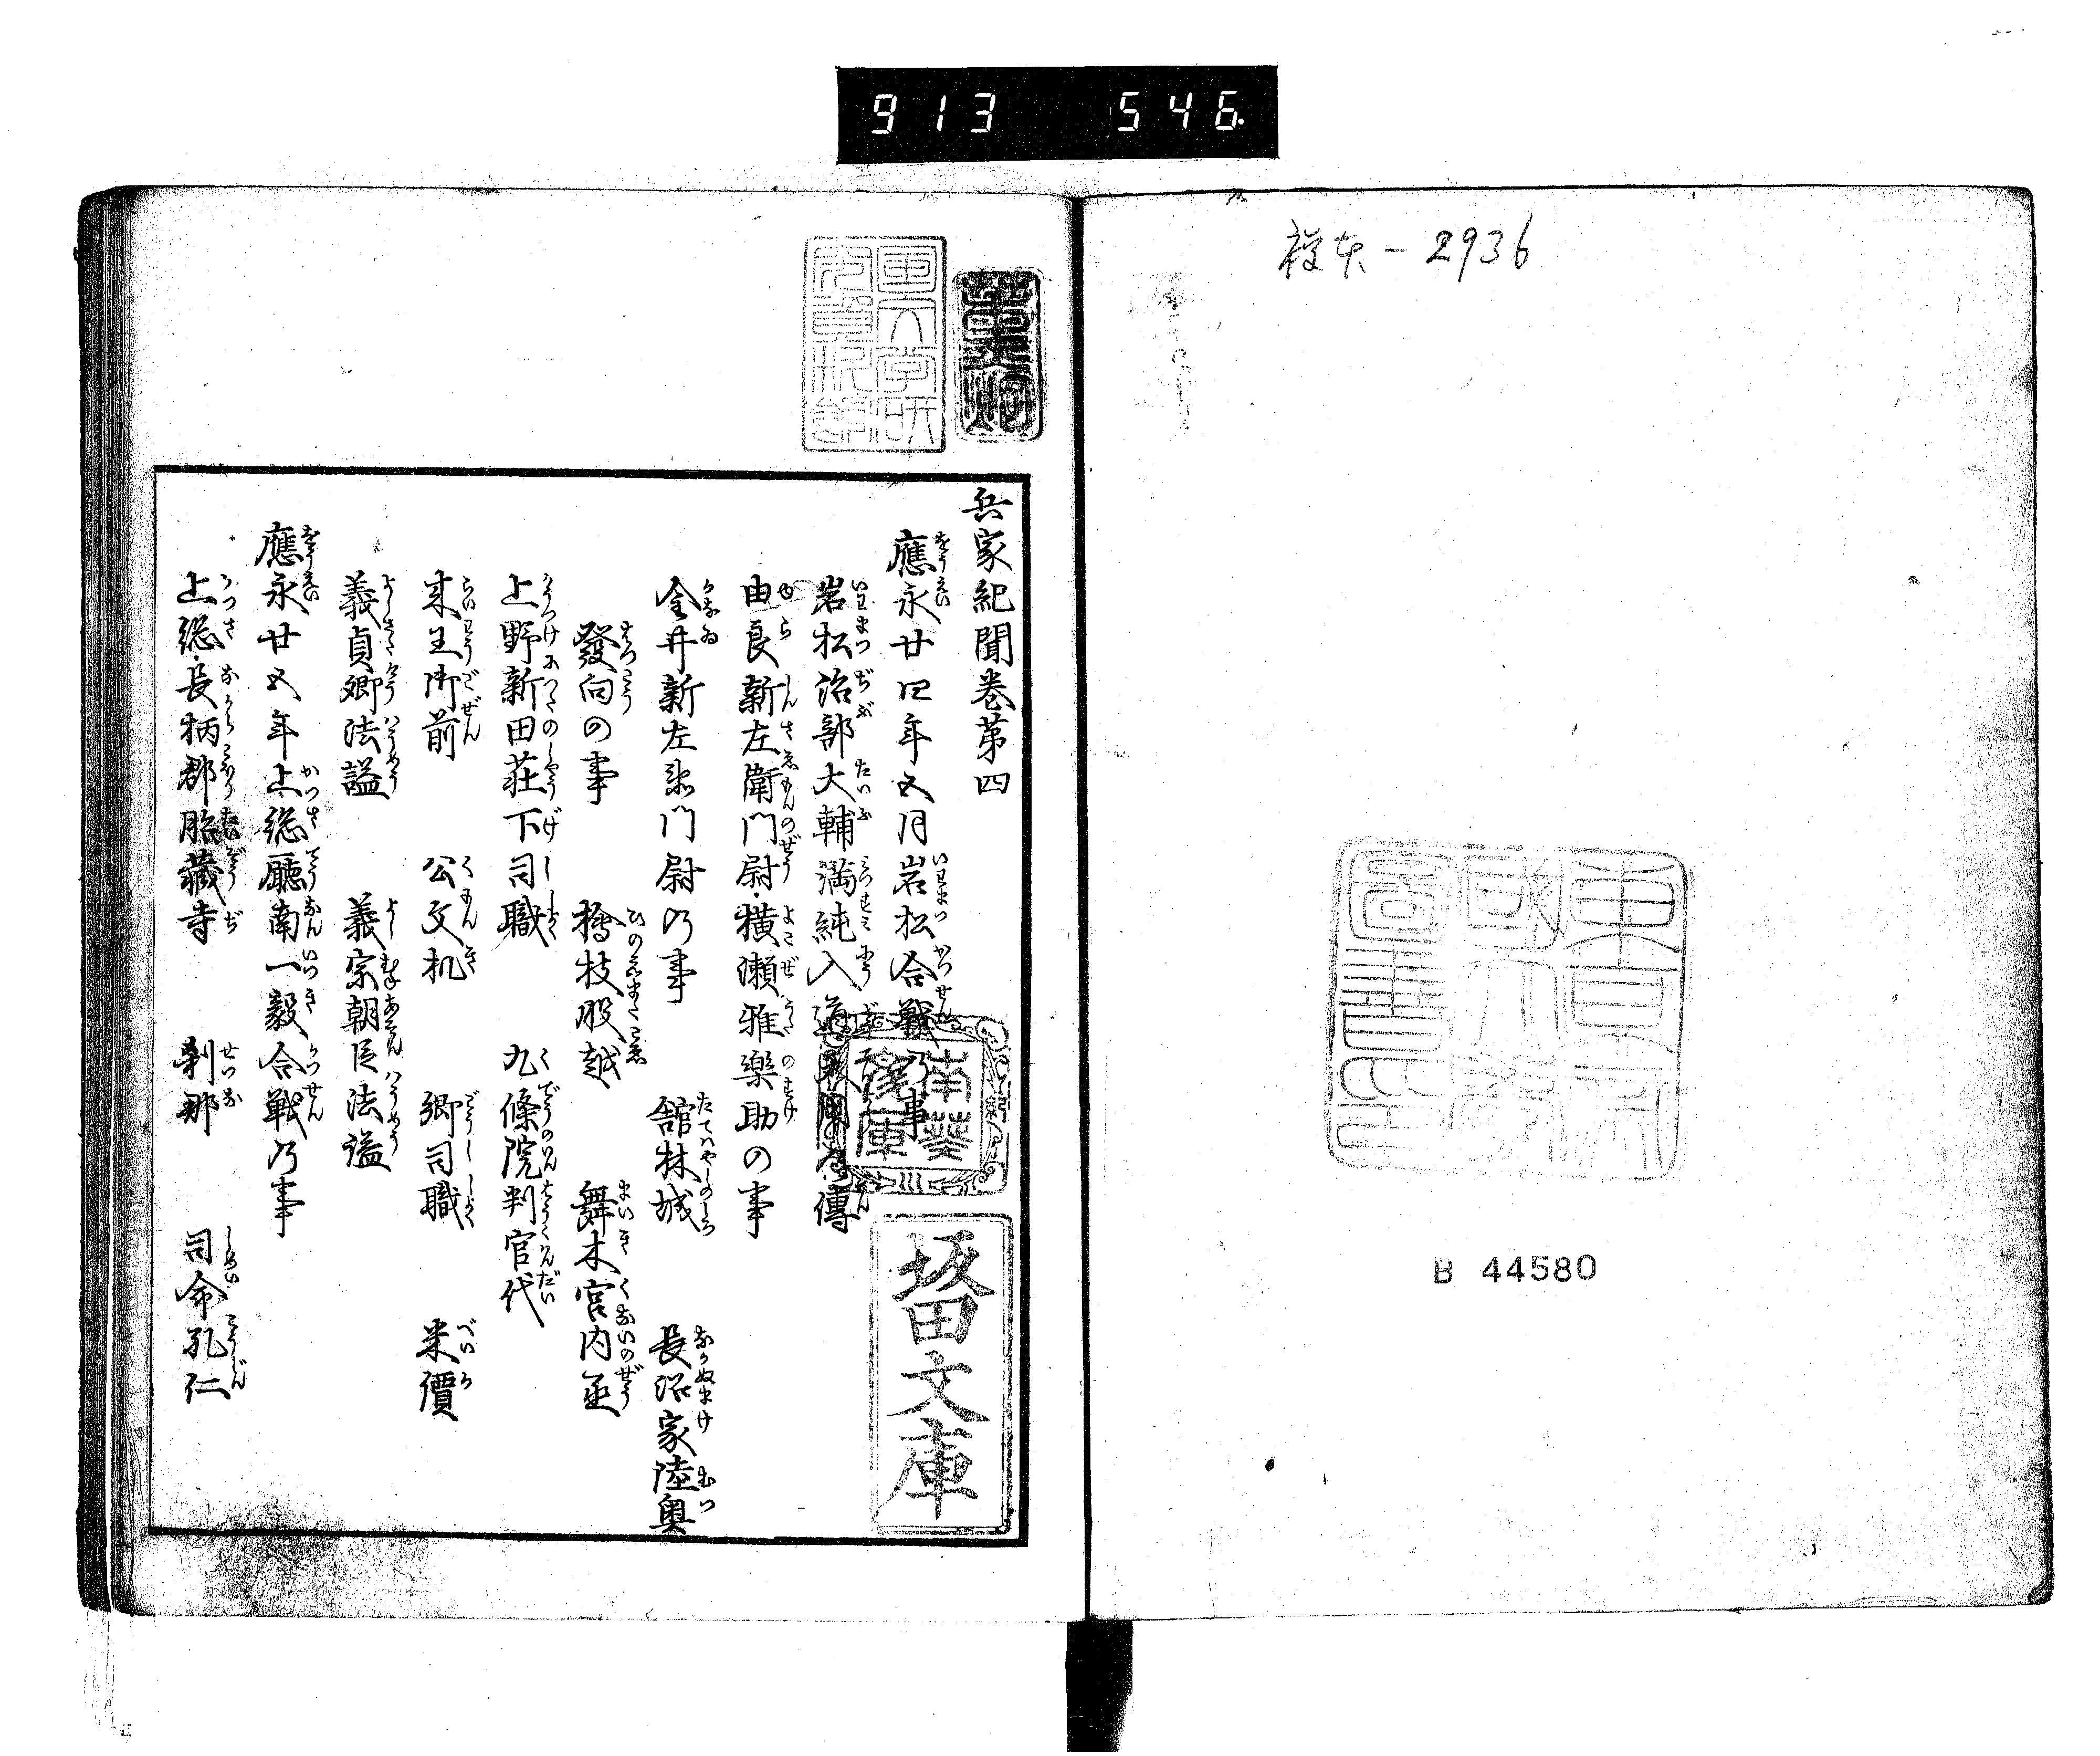 913 546
2936
B 44580
兵家紀聞巻第四
應永廿四年五月岩松合戦乃事
岩松治部大輔満純入道天用乃傳
由良新左衛門尉横瀬雅樂助の事
金井新左衛門尉乃事 舘林城 長沼家陸奥
發向の事 檜枝股越 舞木宮内丞
上野新田荘下司職 九條院判官代
来王御前 公文机 郷司職 米價
義貞卿法諡 義宗朝臣法諡
應永廿五年上総廳南一毅合戦乃事
上総長柄郡胎蔵寺 刹那 司命孔仁
南葵文庫
坂田文庫
東京帝國大學圖書印